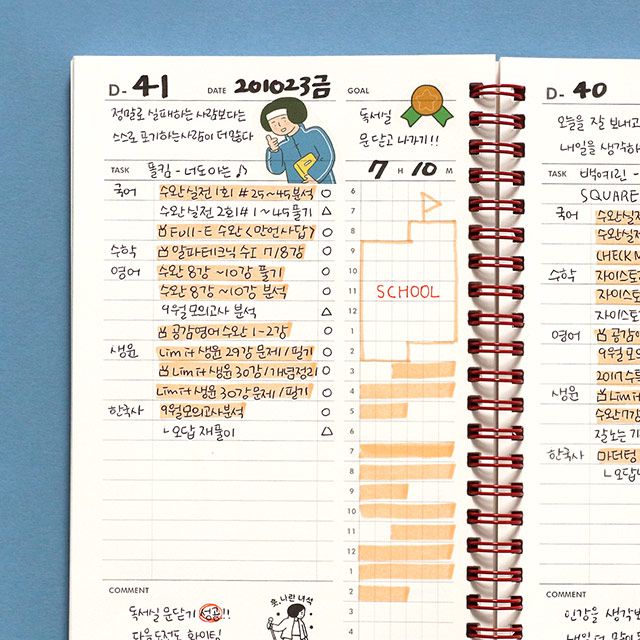 D- 41 DATE 201023금 GOAL
정말로 실패하는 사람보다는
스스로 포기하는 사람이 더 많다
독서실
문 닫고 나가기!!
7 H 10 M
TASK 폴킴 - 너도 아는 ♪
국어 수완실전 1회 #25~45분석 O
수완실전 2회 #1~45풀기 △
Full-E 수완 <안언사탑> O
수학 알파테크닉 수I 7/8강 O
영어 수완 8강 ~10강 풀기 O
수완 8강 ~10강 분석 O
9월모의고사 분석 △
공감영어 수완 1-2강 O
생윤 Limit 생윤 29강 문제/필기 O
Limit 생윤 30강/개념정리 O
Limit 생윤 30강 문제/필기 O
한국사 9월모의고사분석 O
ㄴ오답 재풀이 △
6
7
8
9
10
11
12
1
2
3
4
5
6
7
8
9
10
11
12
1
2
3
4
SCHOOL
COMMENT
독서실 문닫기 성공!!
다음도전도 화이팅
훗, 나란 녀석
D- 40
오늘을 잘 보내고
내일을 생각하
TASK 백예린 -
SQUARE
국어 수완실전
수완실전
CHECK M
수학 자이스토
자이스토
자이스토
영어 공감영
9월모
2017수특
생윤 Limit
수완7강
잘노는기
한국사 마더텅
ㄴ오답
COMMENT
인강을 생각보